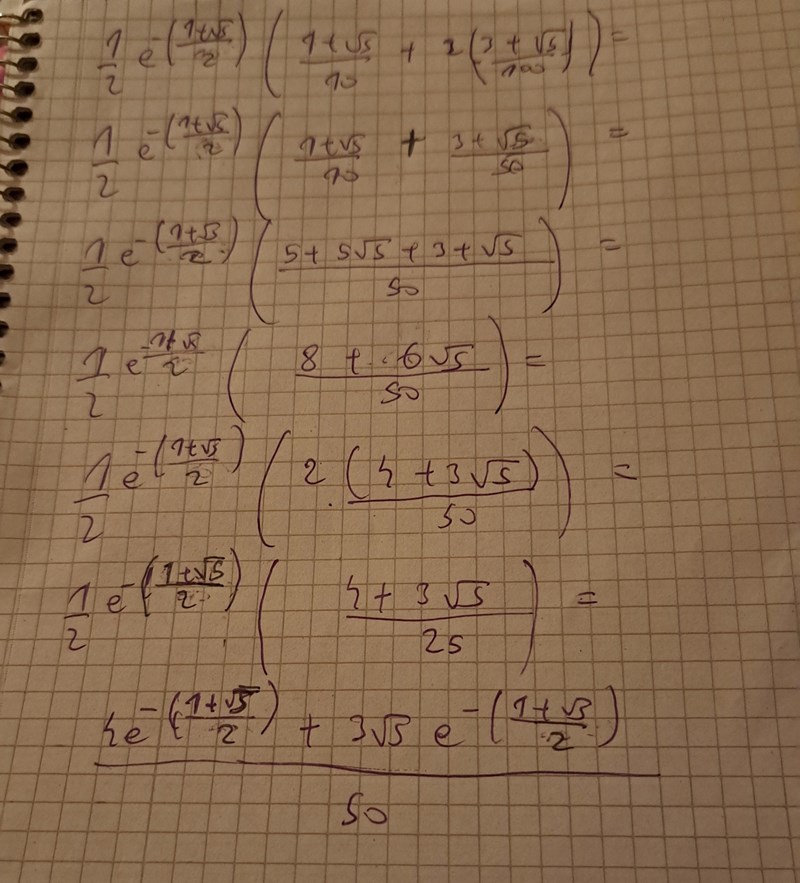 1/2 e^-((1+√5)/2) ( (1+√5)/10 + 2((3+√5)/100) ) =
1/2 e^-((1+√5)/2) ( (1+√5)/10 + (3+√5)/50 ) =
1/2 e^-((1+√5)/2) ( (5+5√5+3+√5)/50 ) =
1/2 e^-(1+√5)/2 ( (8+6√5)/50 ) =
1/2 e^-((1+√5)/2) ( 2·(4+3√5)/50 ) =
1/2 e^-((1+√5)/2) ( (4+3√5)/25 ) =
(4e^-((1+√5)/2) + 3√5 e^-((1+√5)/2))/50